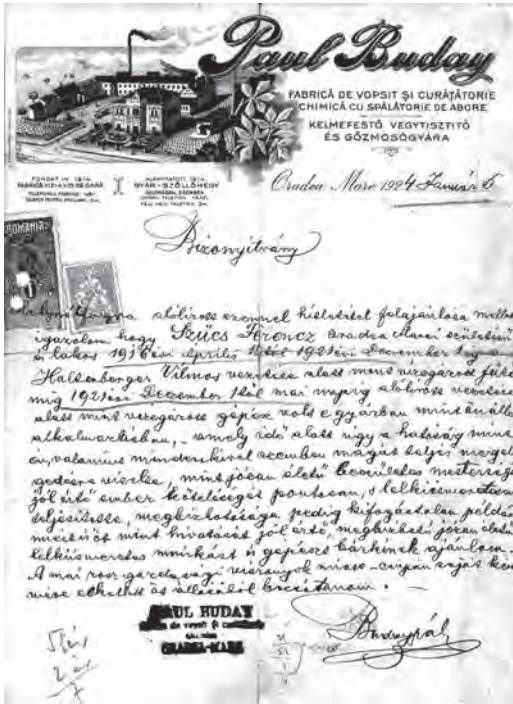 Paul Buday
FABRICĂ DE VOPSIT ȘI CURĂȚĂTORIE
CHIMICĂ CU SPĂLĂTORIE DE ABORE
KELMEFESTŐ VEGYTISZTITÓ
ÉS GŐZMOSÓGYÁRA
FONDAT IN 1914.
FABRICA VIZ-A-VIS DE GARĂ
ALAPÍTTATOTT 1914.
GYÁR-SZÖLLŐHEGY
Oradea Mare 1924 Január 5
Bizonyitvány
ROMANIA
alólirott ezennel hitelesitett felajánlása mellett
igazolom hogy Szücs Ferencz Oradea Marei születésü
s lakos 1916 évi Április 12től 1921 évi December 1 ig
Haltenberger Vilmos vezetése alatt mint vizsgázott fütő
mig 1921 évi December 1től mai napig alólirott vezetése
alatt mint vizsgázott gépész volt e gyárban mint önálló
alkalmazásban, - amely idő alatt úgy a hatóság mint
én, valamint mindenkivel szemben magát teljes megelé-
gedésre viselte, mint józan életű becsületes mesterségét
jól értő ember kötelességét pontosan, s lelkiismeretesen
teljesitette, megbizhatósága pedig kifogástalan példás
miért is őt mint hivatását jól értő, megbizható józan életű
lelkiismeretes munkást és gépészt bárkinek ajánlom.
A mai rossz gazdasági viszonyok miatt csupán saját kér
elbocsátanom.
PAUL BUDAY
de vopsit și
ORADEA-MARE
Buday Pál